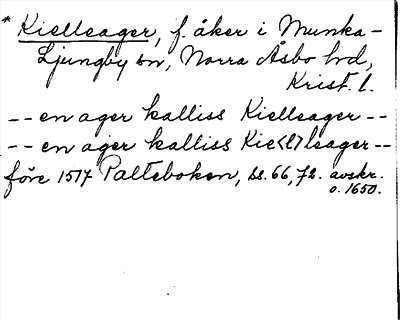 * Kiellsager, f. åker i Munka-
Ljungby sn, Norra Åsbo hd,
Krist. l.
-- en ager kalliss Kiellsager --
-- en ager kalliss Kie<l>lsager --
före 1517 Palteboken, ss. 66, 72. avskr.
o. 1650.